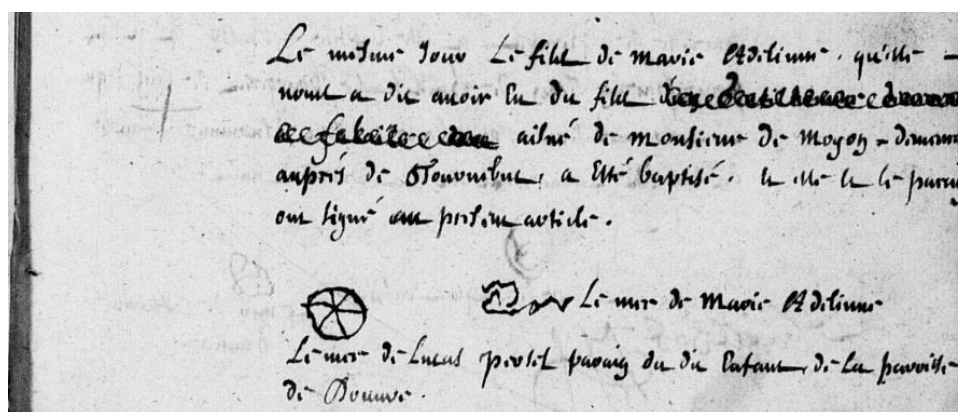 Le mesme Jour Le filz de marie Adeline. qu'elle
nous a dit avoir Eu du filz
aisné de monsieur de Moyon - demeurant
auprés de Tournebut, a Esté baptisé. & elle & le parain
ont signé au present article.
Le mer de Marie Adeline
Le mer de Lucas parain du dit Enfant, de La parroisse
de Douvre.